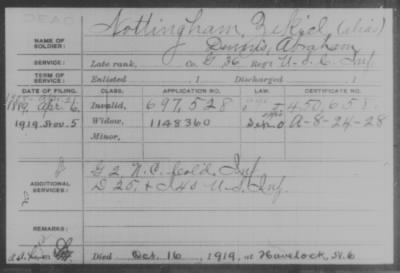 DEAD
Nottingham, Ezekiel (alias)
NAME OF SOLDIER: Dennis, Abraham
SERVICE: Late rank, Co. G 36 Reg't U.S.C. Inf
TERM OF SERVICE: Enlisted , 1 Discharged , 1
DATE OF FILING. CLASS. APPLICATION NO. CERTIFICATE NO.
Apr 6. Invalid, 697,528 450,658.
1919 Nov. 5 Widow, 1148360 A-8-24-28
Minor,
ADDITIONAL SERVICES: G 2, N.C. Col'd, Inf
D 25, & I 40 U.S. Inf.
REMARKS:
Died Oct. 16, 1919, at Havelock, N.C